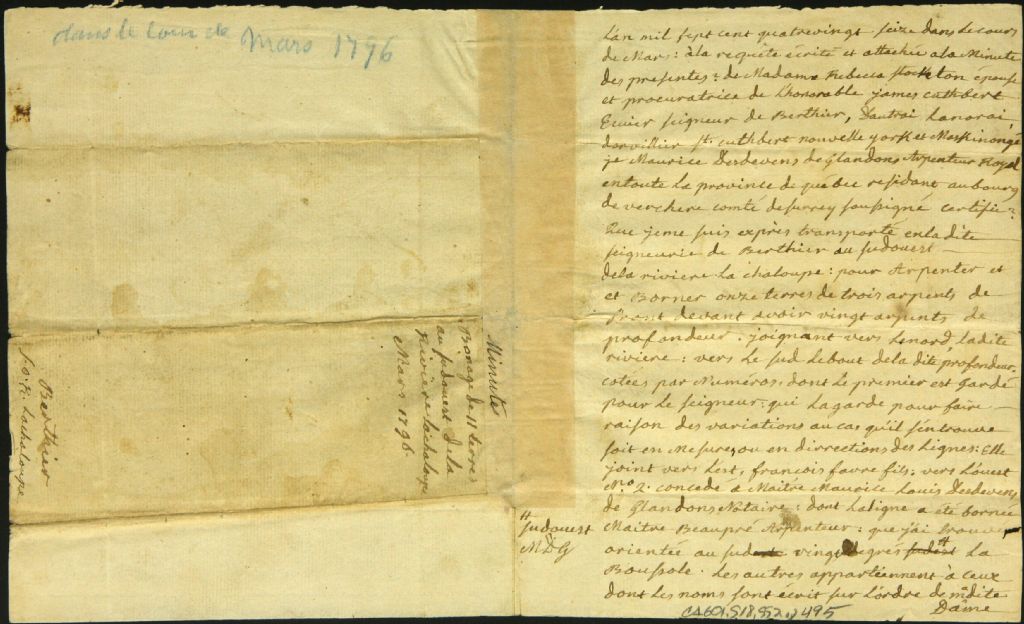 dans le cour de Mars 1796
Minute
Bornage de 11 terres
au sudouest de la
Riviere lachaloupe
Mars 1796
Berthier
S.O. R. Lachaloupe
#
sudouest
MDG
Lan mil sept cent quatrevingt seize dans le cours
de Mars: à la requête écrite et attachée ala Minute
des presentes: de Madame Rebecca stockton épouse
et procuratrice de Lhonorable james cuthbert
Ecuier seigneur de Berthier, Dautrai Lanorai,
dorvillier st. cuthbert nouvelle york et Maskinongé
je Maurice Desdevens de Glandons Arpenteur Royal
entoute la province de québec residant au bourg
de verchere comté de surrey soussigné certifie:
Que jeme suis exprès transporté enladite
seigneurie de Berthier au sudouest
dela riviere la chaloupe: pour Arpenter et
et Borner onze terres de trois arpents de
front devant avoir vingt arpents de
profondeur. joignant vers lenord ladite
riviere: vers le sud lebout dela dite profondeur.
cotées par Numéros. dont le premier est gardé
pour le seigneur: qui lagarde pour faire
raison des variations au cas qu'il s'en trouve
soit en Mesure, ou en dirrections des Lignes: Elle
joint vers lest, françois favre fils: vers l'ouest
No. 2. concedé à Maitre Maurice Louis Desdevens
de Glandons Notaire: dont laligne a été bornée
Maitre Beaupré Arpenteur: que j'ai trouvé
orientée au vingt degrés # La
Boussole. Les autres appartiennent à ceux
dont les noms sont écrit sur l'ordre de madite
Dame
CA601,S18,SS2,,495